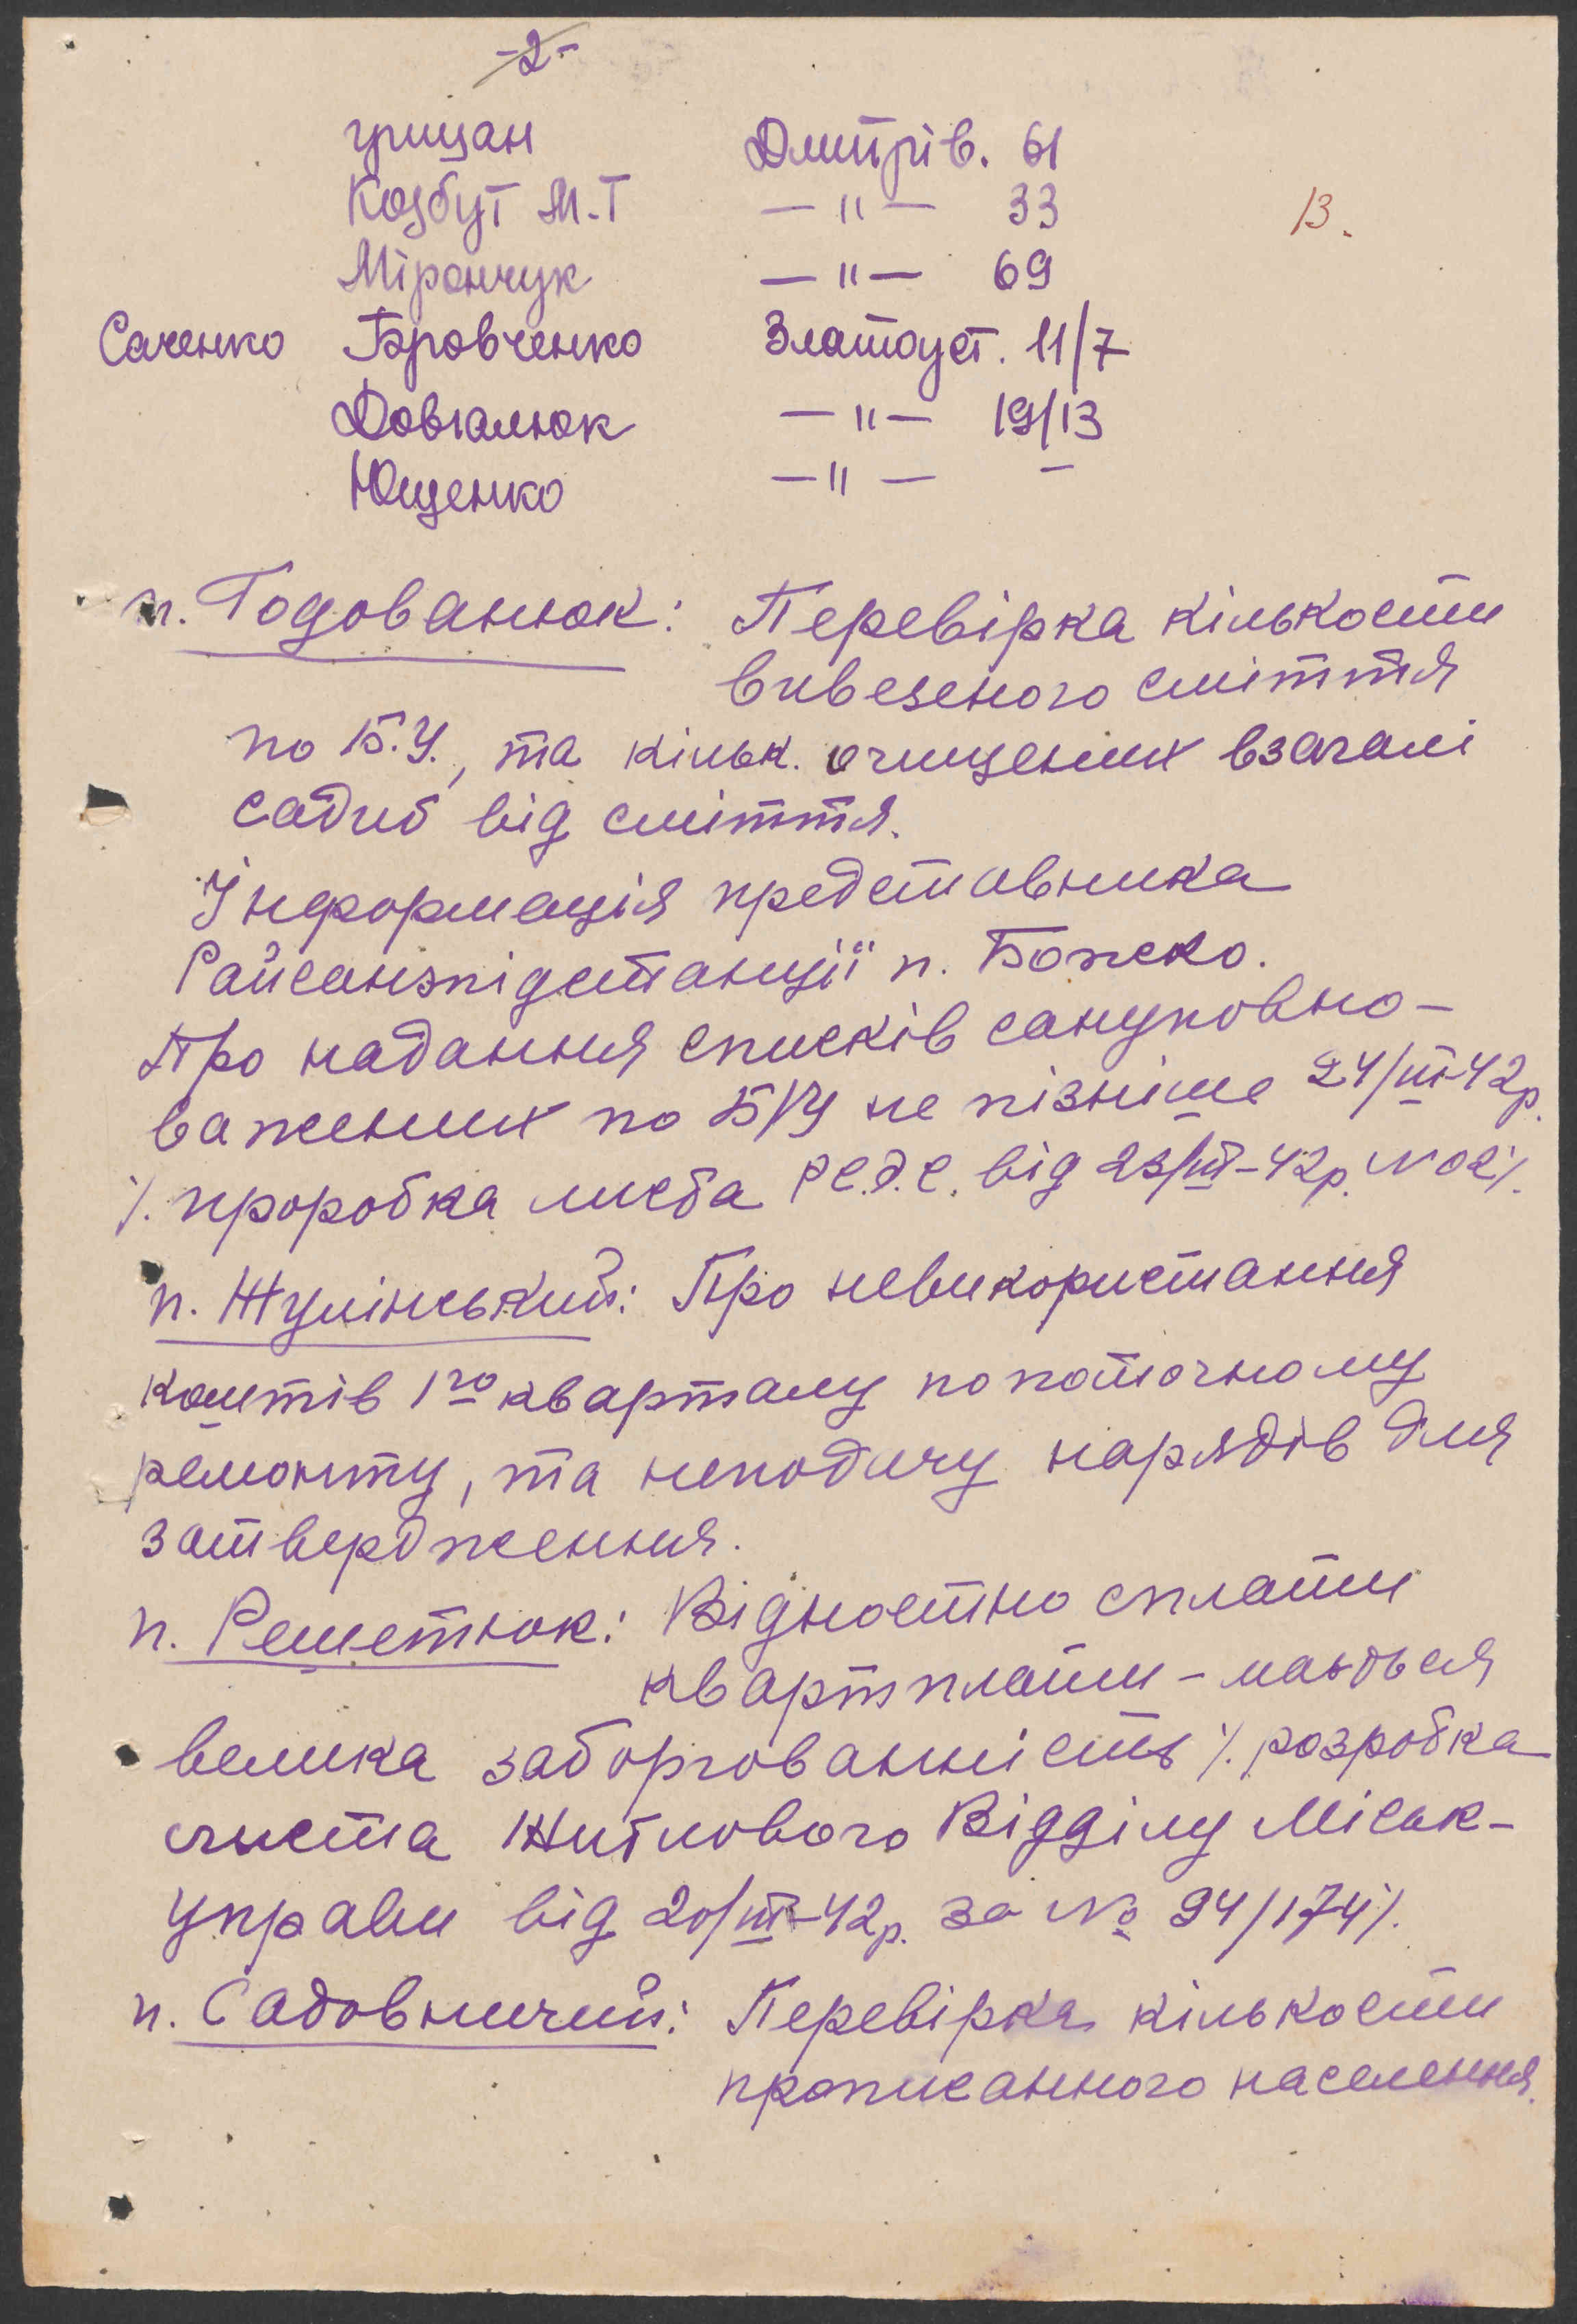 -2-
Грицан Дмитрів. 61
Козбут М.Т —"— 33
13.
Мірончук —"— 69
Саченко Бровченко Златоуст. 11/7
Довгалюк —"— 19/13
Ющенко —"— –
п. Годованюк: Перевірка кількости
вивезеного сміття
по Б.У., та кільк. очищених взагалі
садиб від сміття.
Інформація представника
Райсанэпідстанції п. Божко.
Про надання списків сануповно-
важених по Б/У не пізніше 24/III-42р.
/. проробка листа Р.С.Э.С. від 23/III-42р. №02/.
п. Жулінський: Про невикористання
коштів 1го кварталу по поточному
ремонту, та неподачу нарядів для
затвердження.
п. Решетнюк: Відностно сплати
квартплати - мається
велика заборгованність /. розробка
листа Житлового Відділу Міськ-
управи від 20/III-42р. за № 94/174/.
п. Садовничий: Перевірка кількости
прописанного населення.